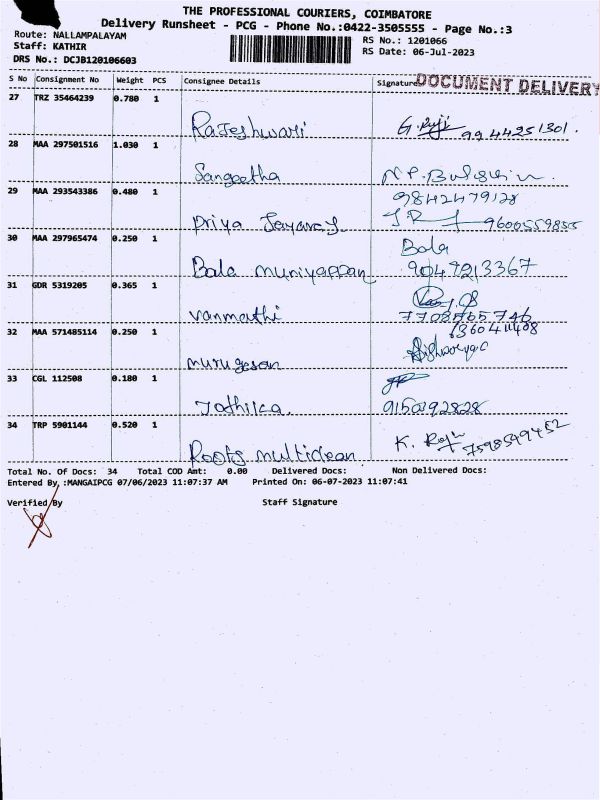 THE PROFESSIONAL COURIERS, COIMBATORE
Delivery Runsheet - PCG - Phone No.:0422-3505555 - Page No.:3
Route: NALLAMPALAYAM RS No.: 1201066
Staff: KATHIR RS Date: 06-Jul-2023
DRS No.: DCJB120106603
S No Consignment No Weight PCS Consignee Details Signature DOCUMENT DELIVERY
27 TRZ 35464239 0.780 1
Rajeshwari
28 MAA 297501516 1.030 1
Sangeetha
29 MAA 293543386 0.480 1 9842479128
Priya 9600559855
30 MAA 297965474 0.250 1 Bala
Bala muniyappan 9047213367
31 GDR 5319205 0.365 1
vanmathi 7708765746
32 MAA 571485114 0.250 1
murugesan
33 CGL 112508 0.180 1
34 TRP 5901144 0.520 1
Roots K. 7598599452
Total No. Of Docs: 34 Total COD Amt: 0.00 Delivered Docs: Non Delivered Docs:
Entered By :MANGAIPCG 07/06/2023 11:07:37 AM Printed On: 06-07-2023 11:07:41
Verified By Staff Signature